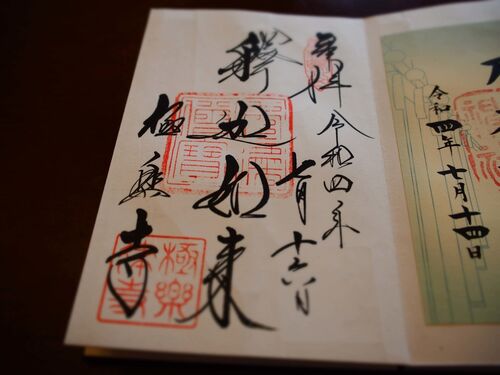 令和四年
七月十四日
奉拝
令和四年
七月十六日
釋迦如来
極楽寺
極樂